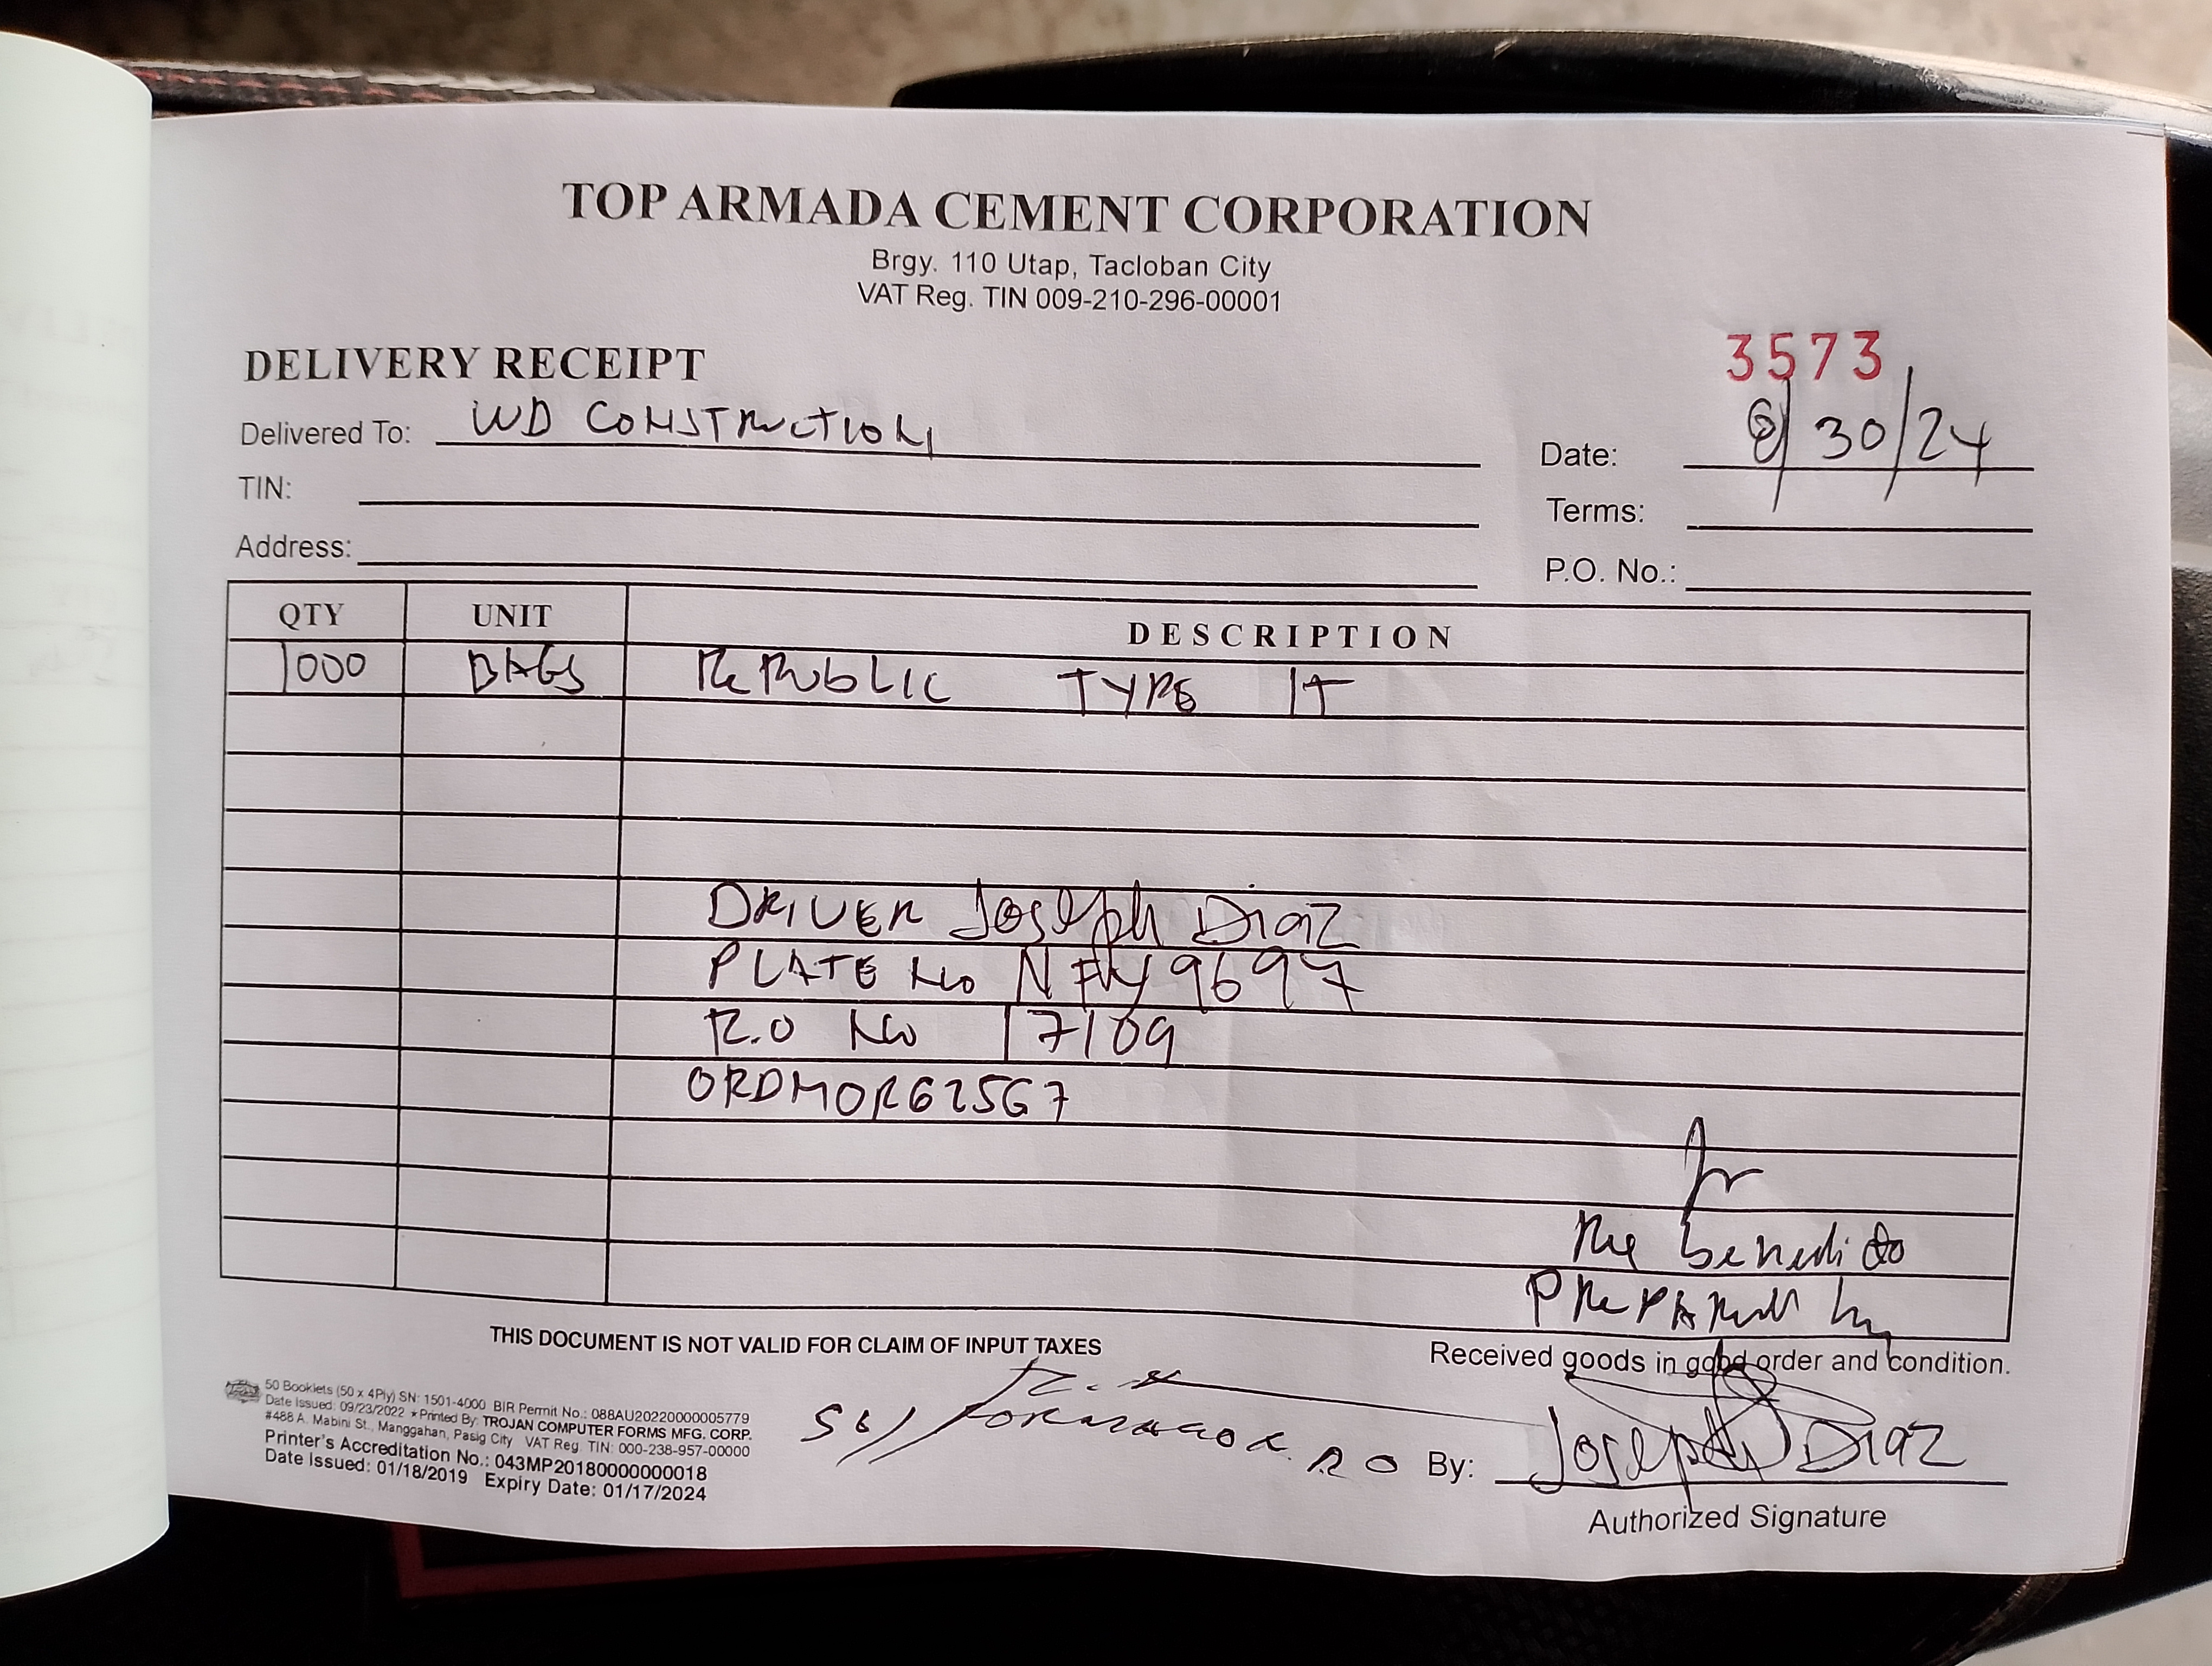 TOP ARMADA CEMENT CORPORATION
Brgy. 110 Utap, Tacloban City
VAT Reg. TIN 009-210-296-00001
3573
DELIVERY RECEIPT
Delivered To: WD CONSTRUCTION
Date: 8/30/24
TIN:
Terms:
Address:
P.O. No.:
QTY UNIT DESCRIPTION
1000 BAGS REPUBLIC TYPE 1T
DRIVER Joseph Diaz
PLATE No NFW 9697
R.O No 17109
ORDMOR62567
Benedicto
PREPARED by
THIS DOCUMENT IS NOT VALID FOR CLAIM OF INPUT TAXES
Received goods in good order and condition.
50 Booklets (50 x 4Ply) SN: 1501-4000 BIR Permit No.: 088AU20220000005779
Date Issued: 09/23/2022 ★ Printed By: TROJAN COMPUTER FORMS MFG. CORP.
#488 A. Mabini St., Manggahan, Pasig City VAT Reg. TIN: 000-238-957-00000
Printer's Accreditation No.: 043MP20180000000018
Date Issued: 01/18/2019 Expiry Date: 01/17/2024
By: Joseph Diaz
Authorized Signature